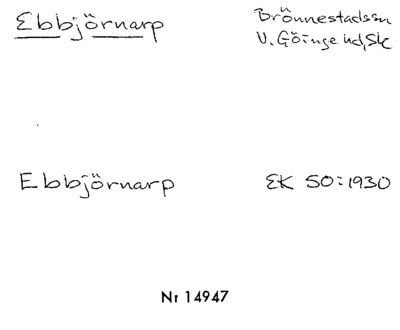 Ebbjörnarp
Brönnestadssn
V. Göinge hd, Sk
Ebbjörnarp
EK 50:1930
Nr 14947